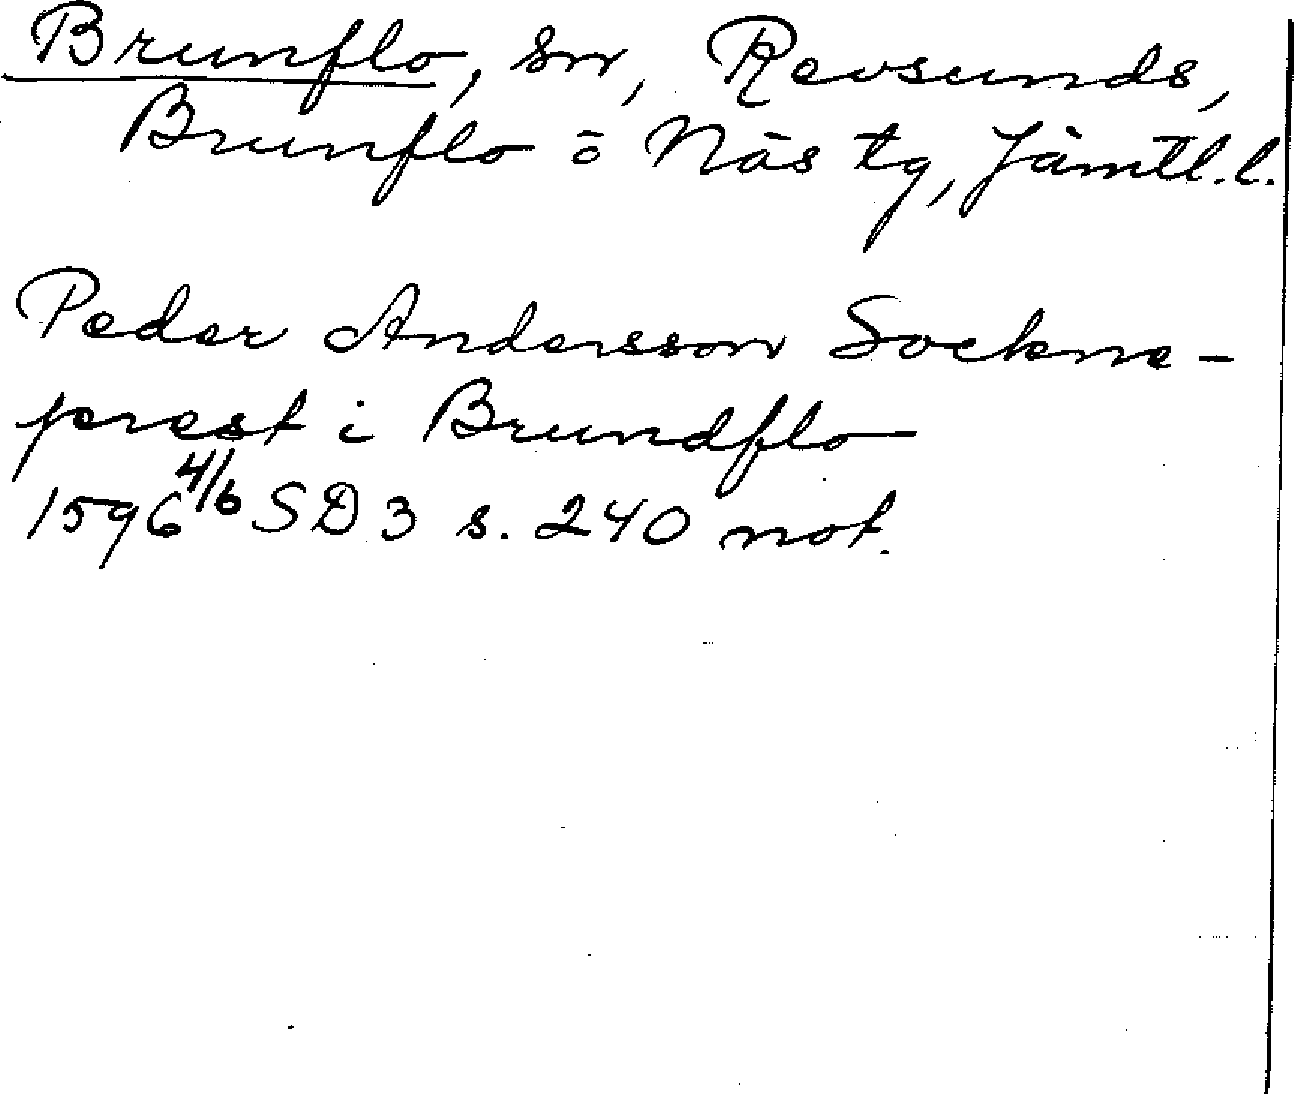 Brunflo, sn, Revsunds,
Brunflo o Näs tg, Jämtl.l.
Peder Andersson Sockne-
prest i Brundflo
1596 4/6 SD 3 s. 240 not.